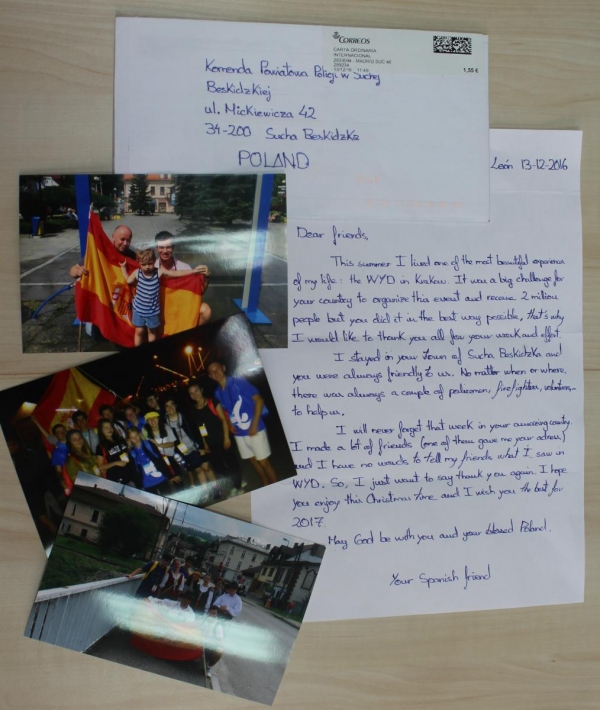 CORREOS
CARTA ORDINARIA
INTERNACIONAL
1,55 €
Komenda Powiatowa Policji w Suchej
Beskidzkiej
ul. Mickiewicza 42
34-200 Sucha Beskidzka
POLAND
León 13-12-2016
Dear friends,
This summer I lived one of the most beautiful experience
of my life: the WYD in Krakow. It was a big challenge for
your country to organize this event and receive 2 million
people but you did it in the best way possible, that's why
I would like to thank you all for your work and effort.
I stayed in your town of Sucha Beskidzka and
you were always friendly to us. No matter when or where,
there was always a couple of policemen, firefighters, volunteers...
to help us.
I will never forget that week in your amazing country.
I made a lot of friends (one of them gave me your adress)
and I have no words to tell my friends what I saw in
WYD. So, I just want to say thank you again. I hope
you enjoy this Christmas time and I wish you the best for
2017.
May God be with you and your blessed Poland.
Your Spanish friend